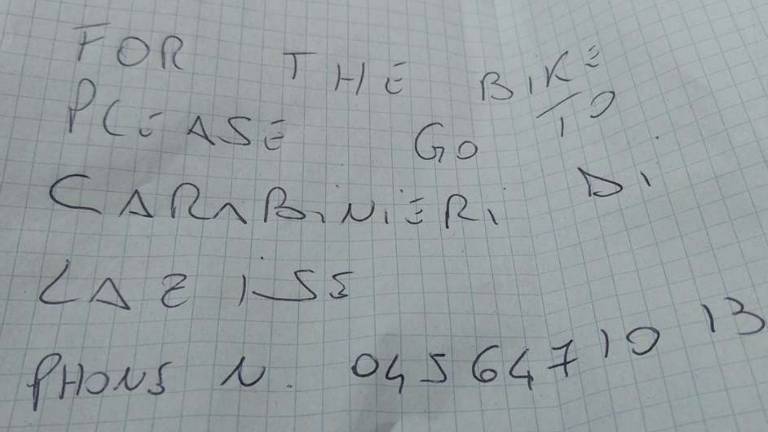 FOR THE BIKE
PLEASE GO TO
CARABINIERI DI
LAZISE
PHONE N. 045 6471013